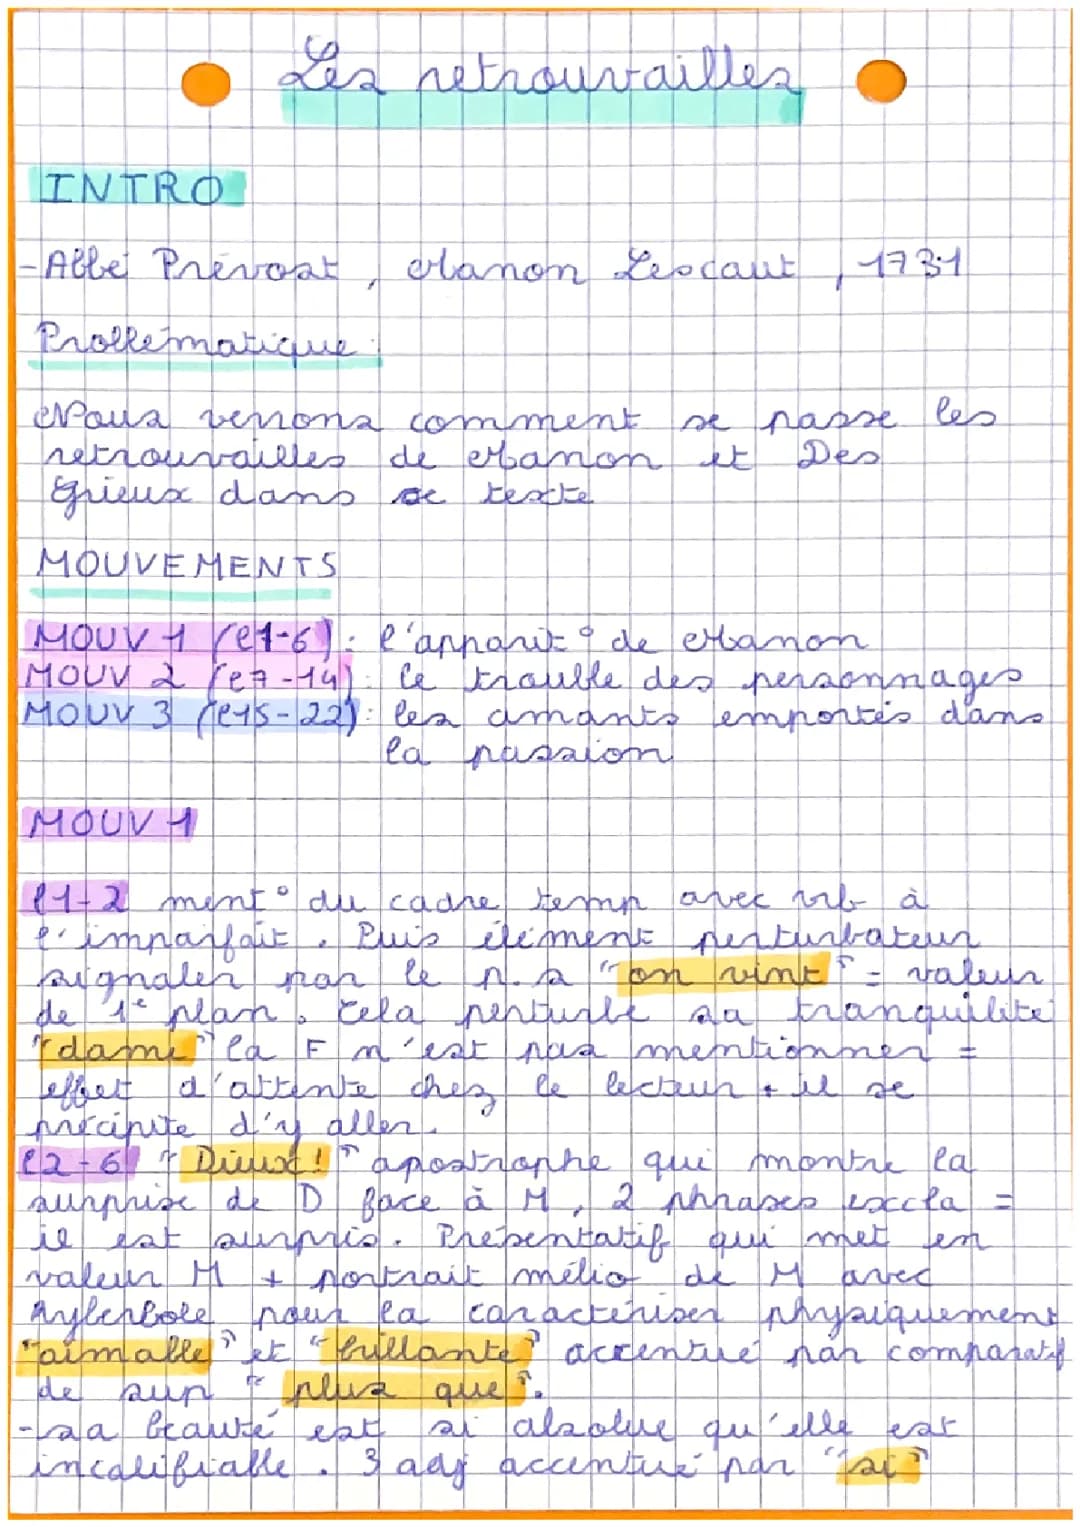 Les retrouvailles
INTRO
-Abbé Prévost, Manon Lescaut, 1731
Problématique :
Nous verrons comment se passe les
retrouvailles de Manon et Des
Grieux dans ce texte
MOUVEMENTS
MOUV 1 (l1-6) : l'apparit° de Manon
MOUV 2 (l7-14) : le trouble des personnages
MOUV 3 (l15-22) : les amants emportés dans
la passion
MOUV 1
l1-2 ment° du cadre temp avec vrb à
l'imparfait. Puis élément perturbateur
signaler par le p.s "on vint" = valeur
de 1e plan. Cela perturbe sa tranquilité
"dame" la F n'est pas mentionner =
effet d'attente chez le lecteur + il se
précipite d'y aller.
l2-6 "Dieux!" apostrophe qui montre la
surprise de D face à M, 2 phrases excla =
il est surpris. Présentatif qui met en
valeur M + portrait mélio de M avec
hyberbole pour la caractériser physiquement
"aimable" et "brillante" accentué par comparatif
de sup "plus que".
-sa beauté est si absolue qu'elle est
incalifiable. 3 adj accentué par "si"